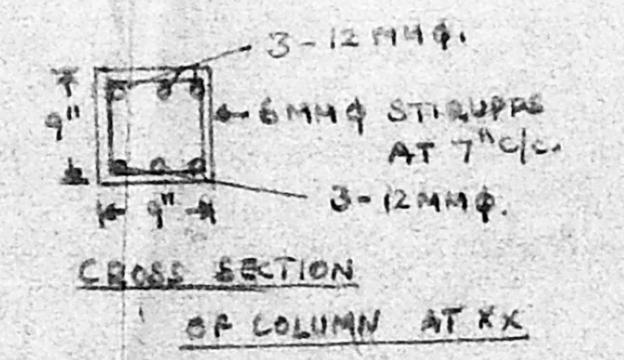 3-12MMφ.
9"
6MMφ STIRUPPS
AT 7" c/c.
3-12MMφ.
9"
CROSS SECTION
OF COLUMN AT XX